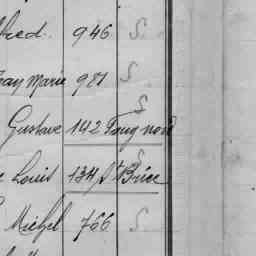 fred. 946 S
May Marie 981 S
S
Gustave 142 Foug nord
S
Louis 134 St Brice
Michel 766 S